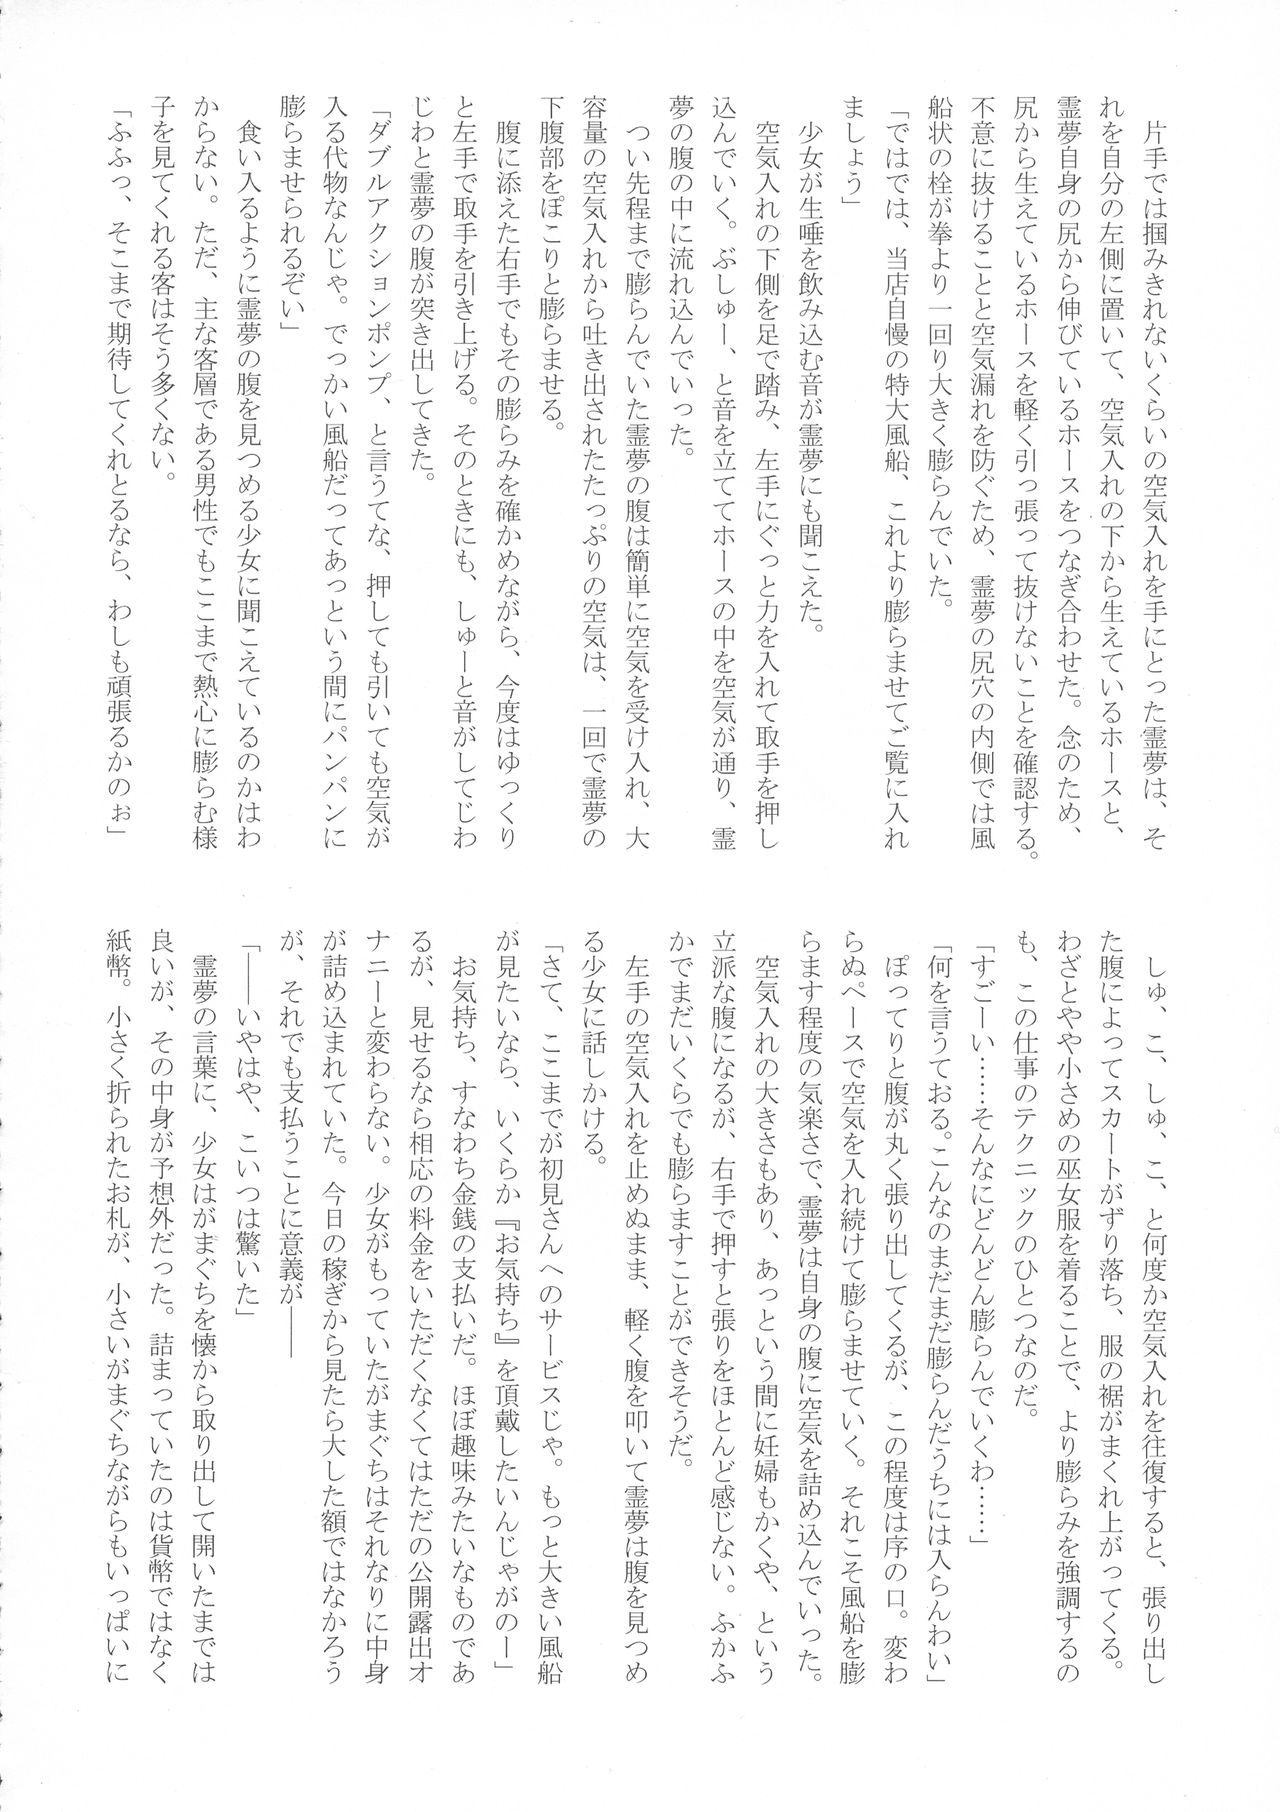 片手では掴みきれないくらいの空気入れを手にとった霊夢は、そ
れを自分の左側に置いて、空気入れの下から生えているホースと、
霊夢自身の尻から伸びているホースをつなぎ合わせた。念のため、
尻から生えているホースを軽く引っ張って抜けないことを確認する。
不意に抜けることと空気漏れを防ぐため、霊夢の尻穴の内側では風
船状の栓が拳より一回り大きく膨らんでいた。
「ではでは、当店自慢の特大風船、これより膨らませてご覧に入れ
ましょう」
　少女が生唾を飲み込む音が霊夢にも聞こえた。
　空気入れの下側を足で踏み、左手にぐっと力を入れて取手を押し
込んでいく。ぶしゅー、と音を立ててホースの中を空気が通り、霊
夢の腹の中に流れ込んでいった。
　つい先程まで膨らんでいた霊夢の腹は簡単に空気を受け入れ、大
容量の空気入れから吐き出されたたっぷりの空気は、一回で霊夢の
下腹部をぽこりと膨らませる。
　腹に添えた右手でもその膨らみを確かめながら、今度はゆっくり
と左手で取手を引き上げる。そのときにも、しゅーと音がしてじわ
じわと霊夢の腹が突き出してきた。
「ダブルアクションポンプ、と言うてな、押しても引いても空気が
入る代物なんじゃ。でっかい風船だってあっという間にパンパンに
膨らませられるぞい」
　食い入るように霊夢の腹を見つめる少女に聞こえているのかはわ
からない。ただ、主な客層である男性でもここまで熱心に膨らむ様
子を見てくれる客はそう多くない。
「ふふっ、そこまで期待してくれとるなら、わしも頑張るかのぉ」
　しゅ、こ、しゅ、こ、と何度か空気入れを往復すると、張り出し
た腹によってスカートがずり落ち、服の裾がまくれ上がってくる。
わざとやや小さめの巫女服を着ることで、より膨らみを強調するの
も、この仕事のテクニックのひとつなのだ。
「すごーい……そんなにどんどん膨らんでいくわ……」
「何を言うておる。こんなのまだまだ膨らんだうちには入らんわい」
　ぽってりと腹が丸く張り出してくるが、この程度は序の口。変わ
らぬペースで空気を入れ続けて膨らませていく。それこそ風船を膨
らます程度の気楽さで、霊夢は自身の腹に空気を詰め込んでいった。
　空気入れの大きさもあり、あっという間に妊婦もかくや、という
立派な腹になるが、右手で押すと張りをほとんど感じない。ふかふ
かでまだいくらでも膨らますことができそうだ。
　左手の空気入れを止めぬまま、軽く腹を叩いて霊夢は腹を見つめ
る少女に話しかける。
「さて、ここまでが初見さんへのサービスじゃ。もっと大きい風船
が見たいなら、いくらか『お気持ち』を頂戴したいんじゃがのー」
　お気持ち、すなわち金銭の支払いだ。ほぼ趣味みたいなものであ
るが、見せるなら相応の料金をいただくなくてはただの公開露出オ
ナニーと変わらない。少女がもっていたがまぐちはそれなりに中身
が詰め込まれていた。今日の稼ぎから見たら大した額ではなかろう
が、それでも支払うことに意義が――
「――いやはや、こいつは驚いた」
　霊夢の言葉に、少女はがまぐちを懐から取り出して開いたまでは
良いが、その中身が予想外だった。詰まっていたのは貨幣ではなく
紙幣。小さく折られたお札が、小さいがまぐちながらもいっぱいに